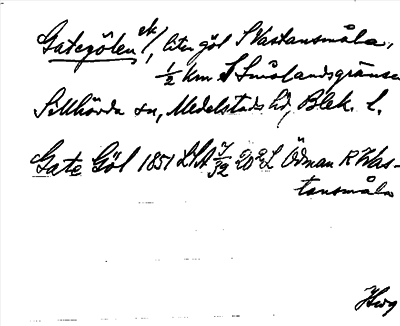 Gategölen ek/, liten göl S Västansmåla,
½ km S Smålandsgränsen
Sillhövda sn, Medelstads hd, Blek. l.
Gate Göl 1851 LSA 7/32 Ödman R Väs-
tansmåla